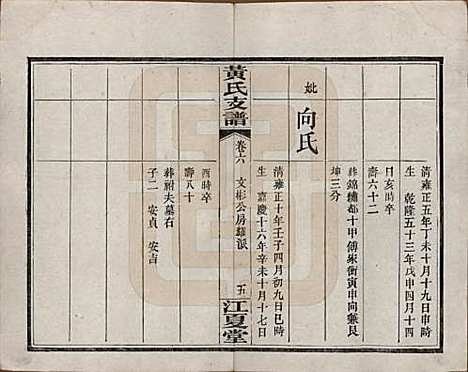 清雍正五年丁未十月十九日申時
生 乾隆五十三年戊申四月十四
日亥時卒
壽六十二
葬錦穗都十甲傅家衝寅申向兼艮
坤三分
妣 向氏
清雍正十年壬子四月初九日巳時
生 嘉慶十六年辛未十月十七日
黃氏支譜
卷六 文彬公房
五
江夏堂
酉時卒
壽八十
葬祔夫墓右
子二 安貞 安吉